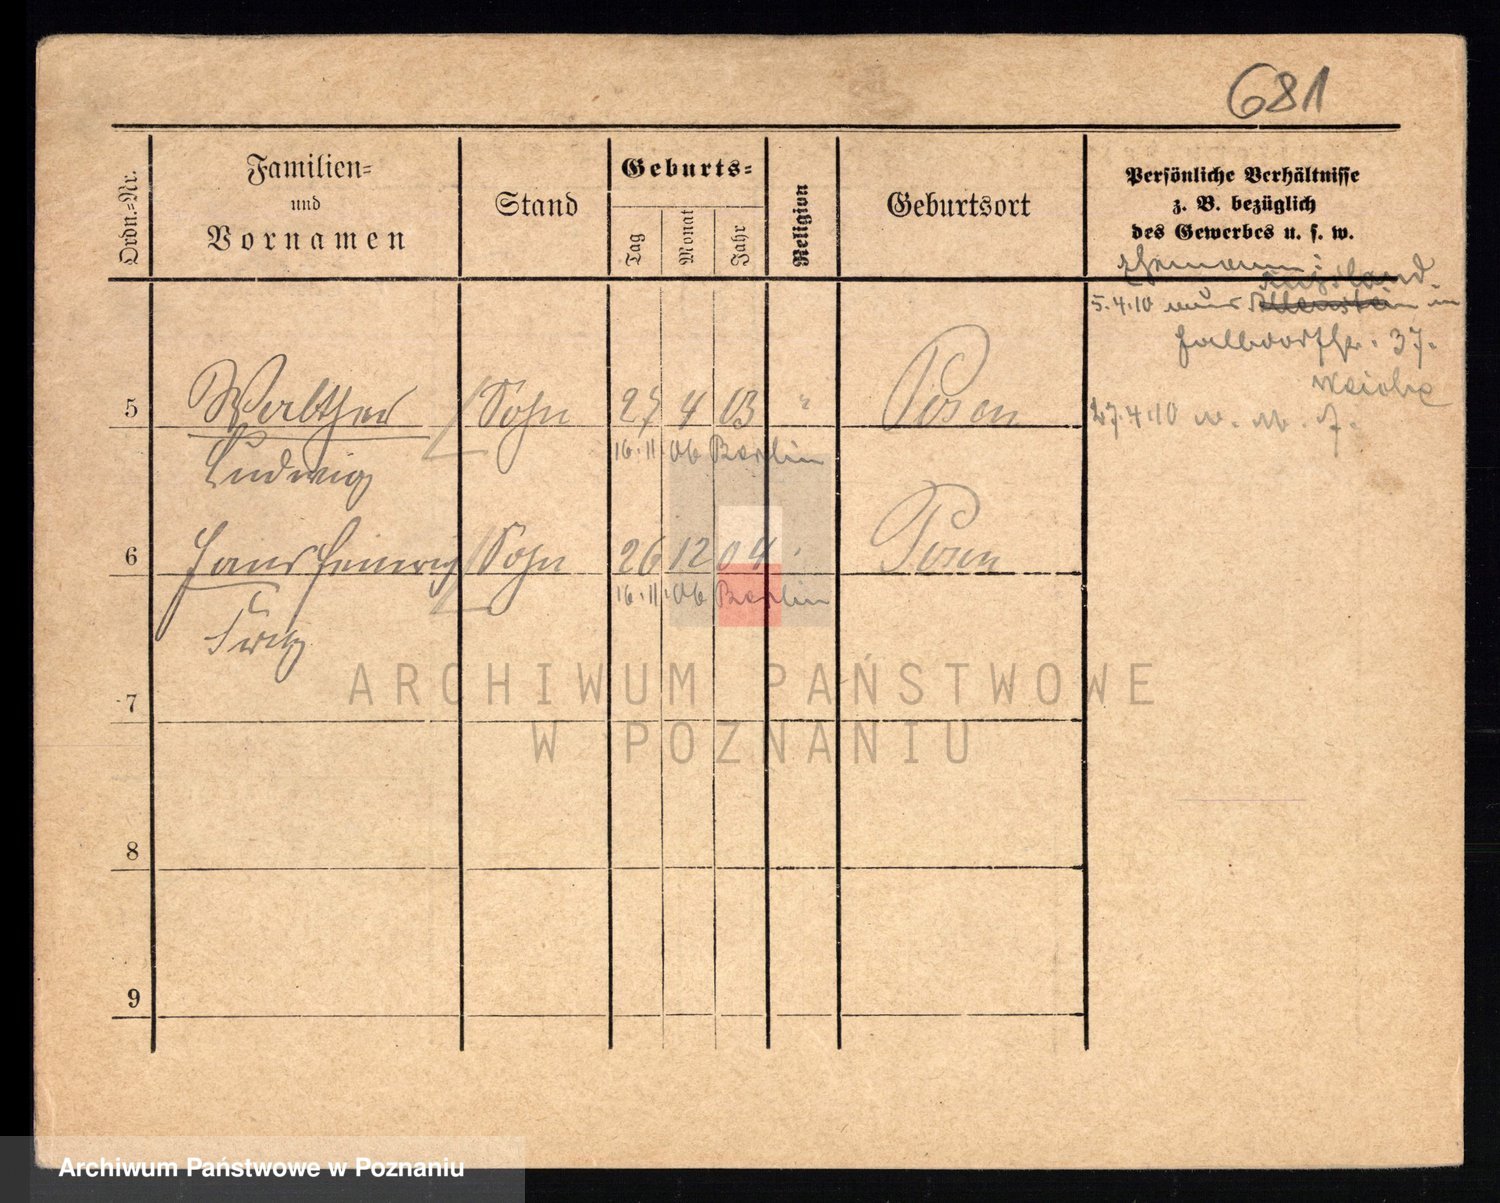 681
Ordn.-Nr.
Familien-
und
Vornamen
Stand
Geburts-
Tag
Monat
Jahr
Religion
Geburtsort
Persönliche Verhältnisse
z. B. bezüglich
des Gewerbes u. s. w.
Ehemann:
Russland.
5.4.10 Allenstein in
37.
5 Walther Sohn 27 4 03 " Posen
27.4.10
Ludwig
16.11.06 Berlin
6 Hans Heinrich Sohn 26 12 04 Posen
16.11.06 Berlin
Fritz
7
8
9
ARCHIWUM PAŃSTWOWE
W POZNANIU
Archiwum Państwowe w Poznaniu